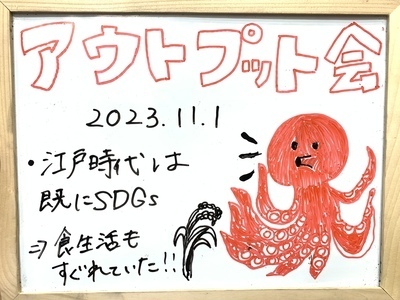 アウトプット会
2023.11.1
・江戸時代は
既にSDGs
⇒食生活も
すぐれていた!!